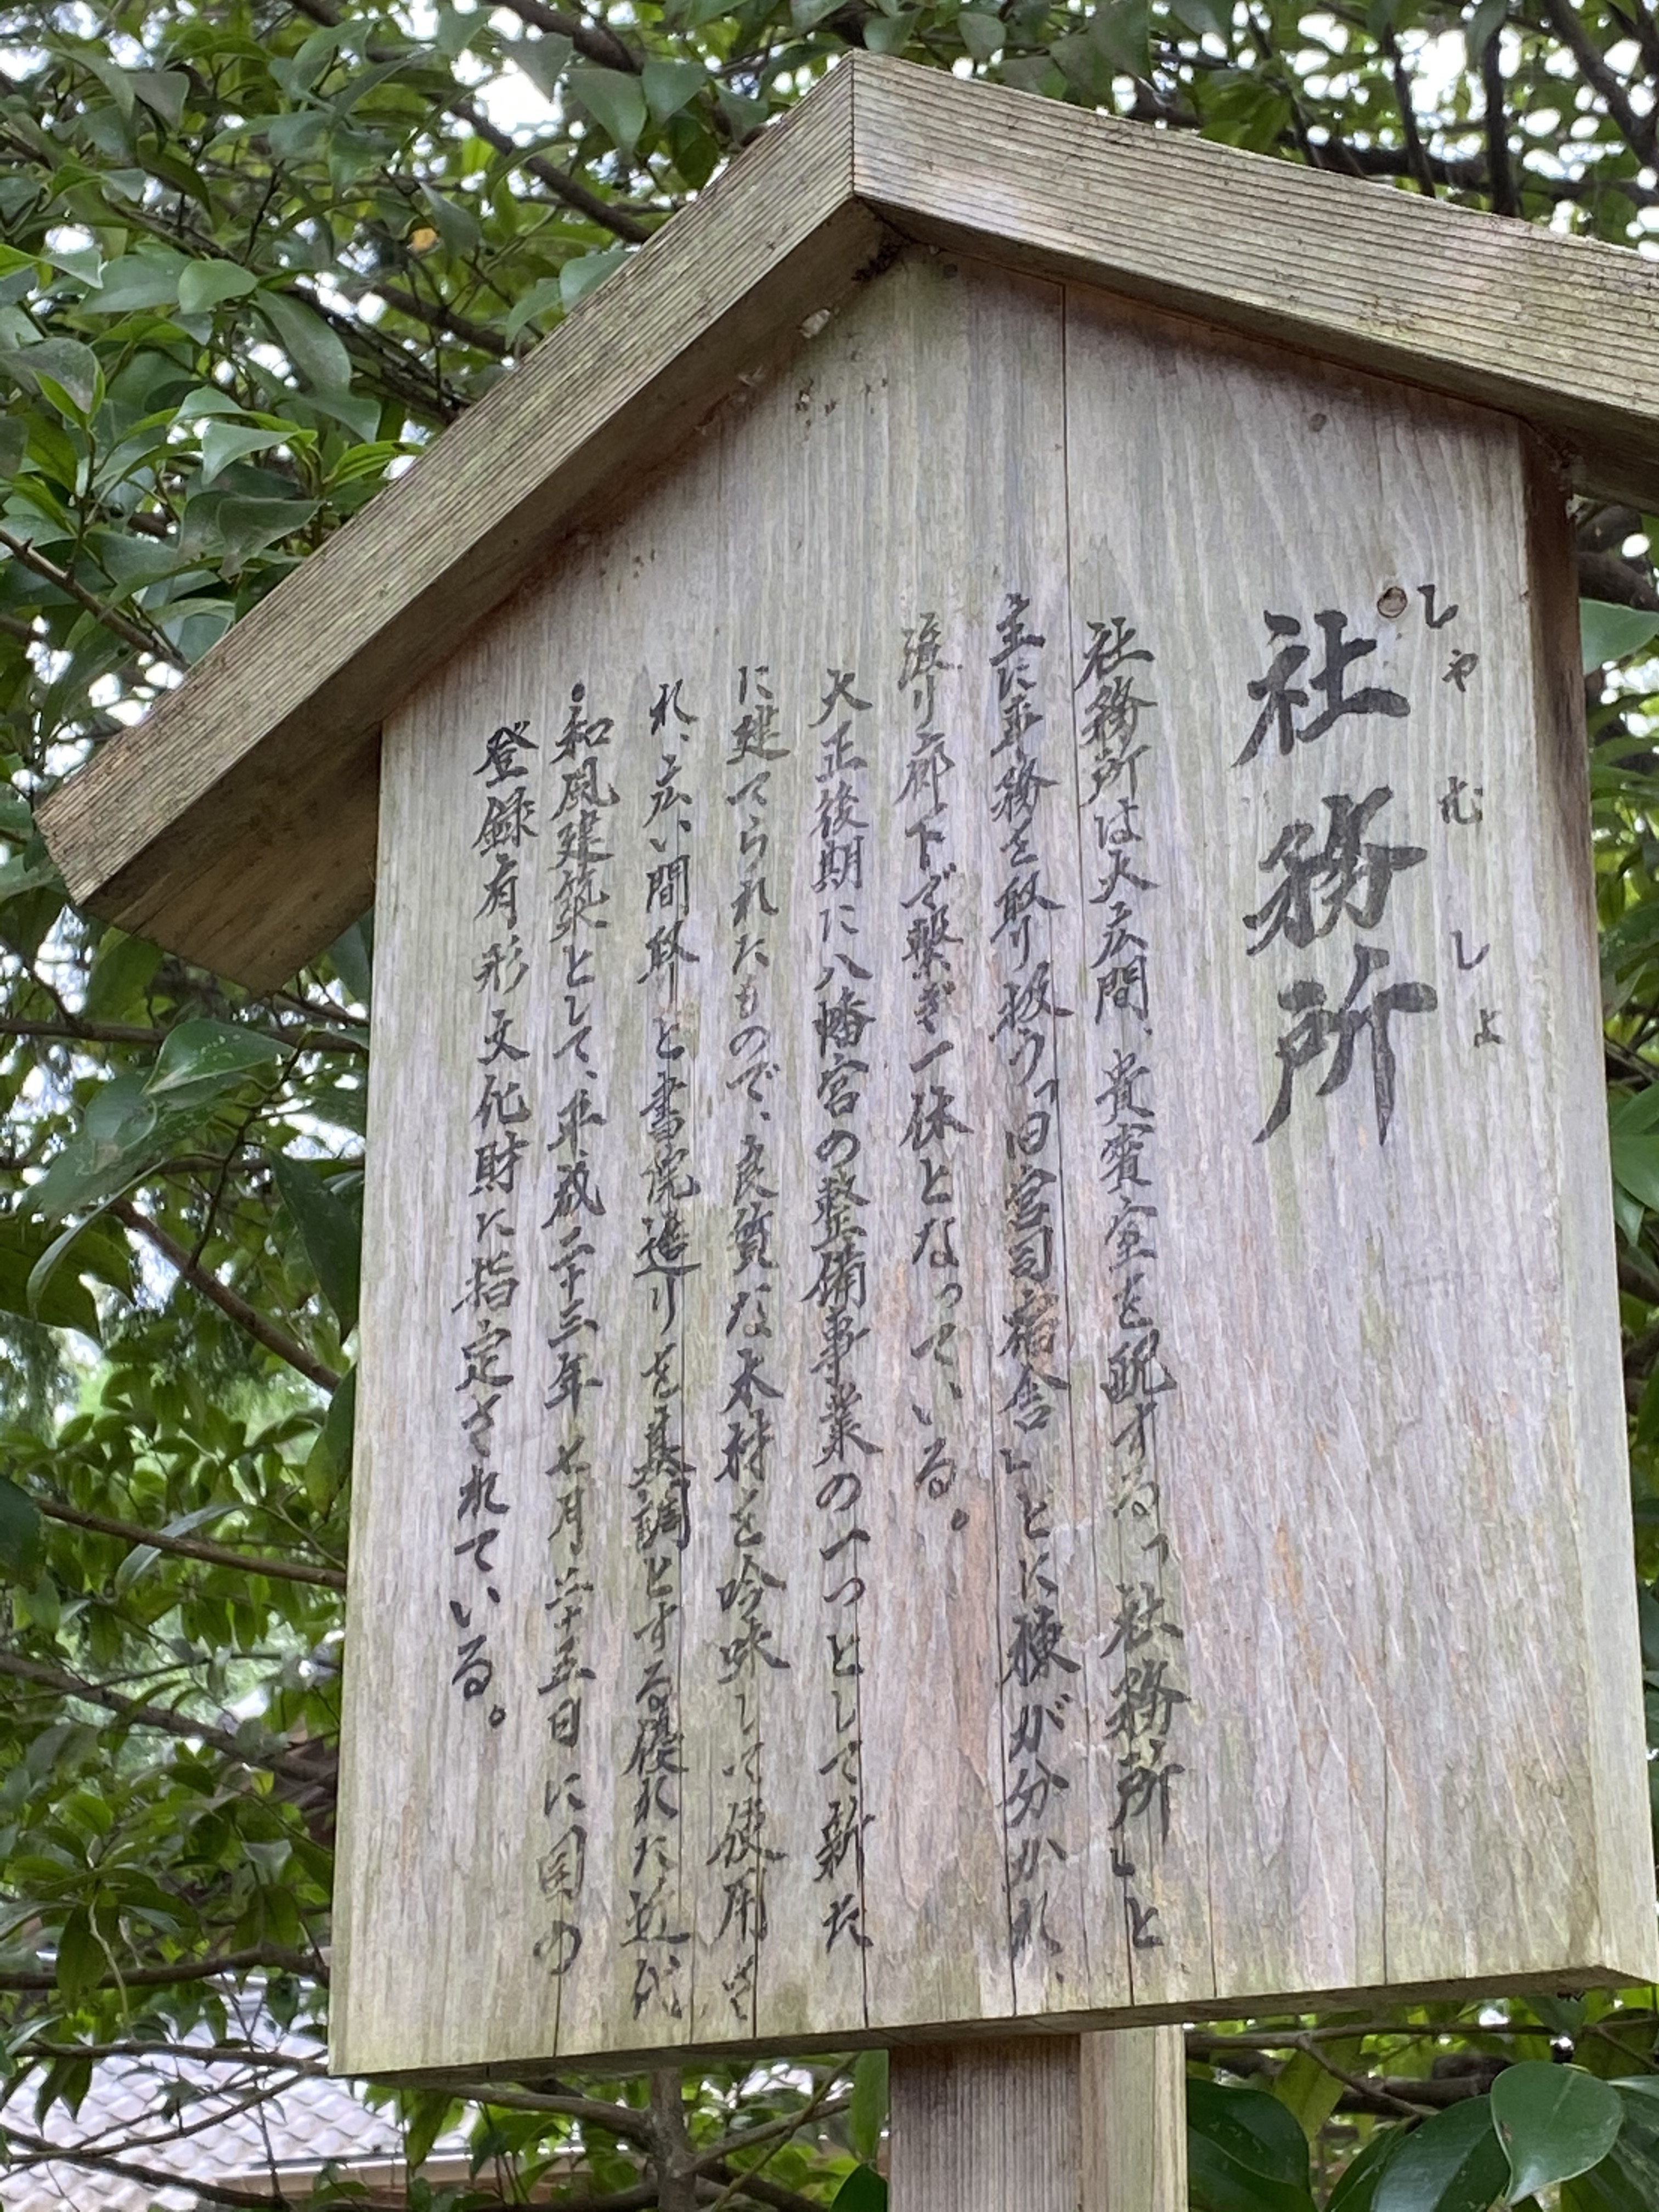 社務所
しゃむしょ
社務所は大広間、貴賓室を配する「社務所」と
主に事務を取り扱う「旧宮司宿舎」とに棟が分かれ、
渡り廊下で繋ぎ一体となっている。
大正後期に八幡宮の整備事業の一つとして新た
に建てられたもので、良質な木材を吟味して使用さ
れ、広い間取りと書院造りを基調とする優れた近代
和風建築として、平成二十三年七月二十五日に国の
登録有形文化財に指定されている。